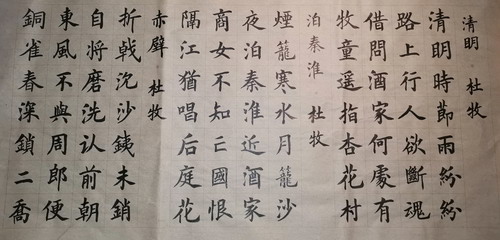 清明 杜牧
清明時節雨紛紛
路上行人欲斷魂
借問酒家何處有
牧童遥指杏花村
泊秦淮 杜牧
煙籠寒水月籠沙
夜泊秦淮近酒家
商女不知亡國恨
隔江猶唱后庭花
赤壁 杜牧
折戟沉沙銕未銷
自将磨洗认前朝
東風不與周郎便
銅雀春深鎖二喬